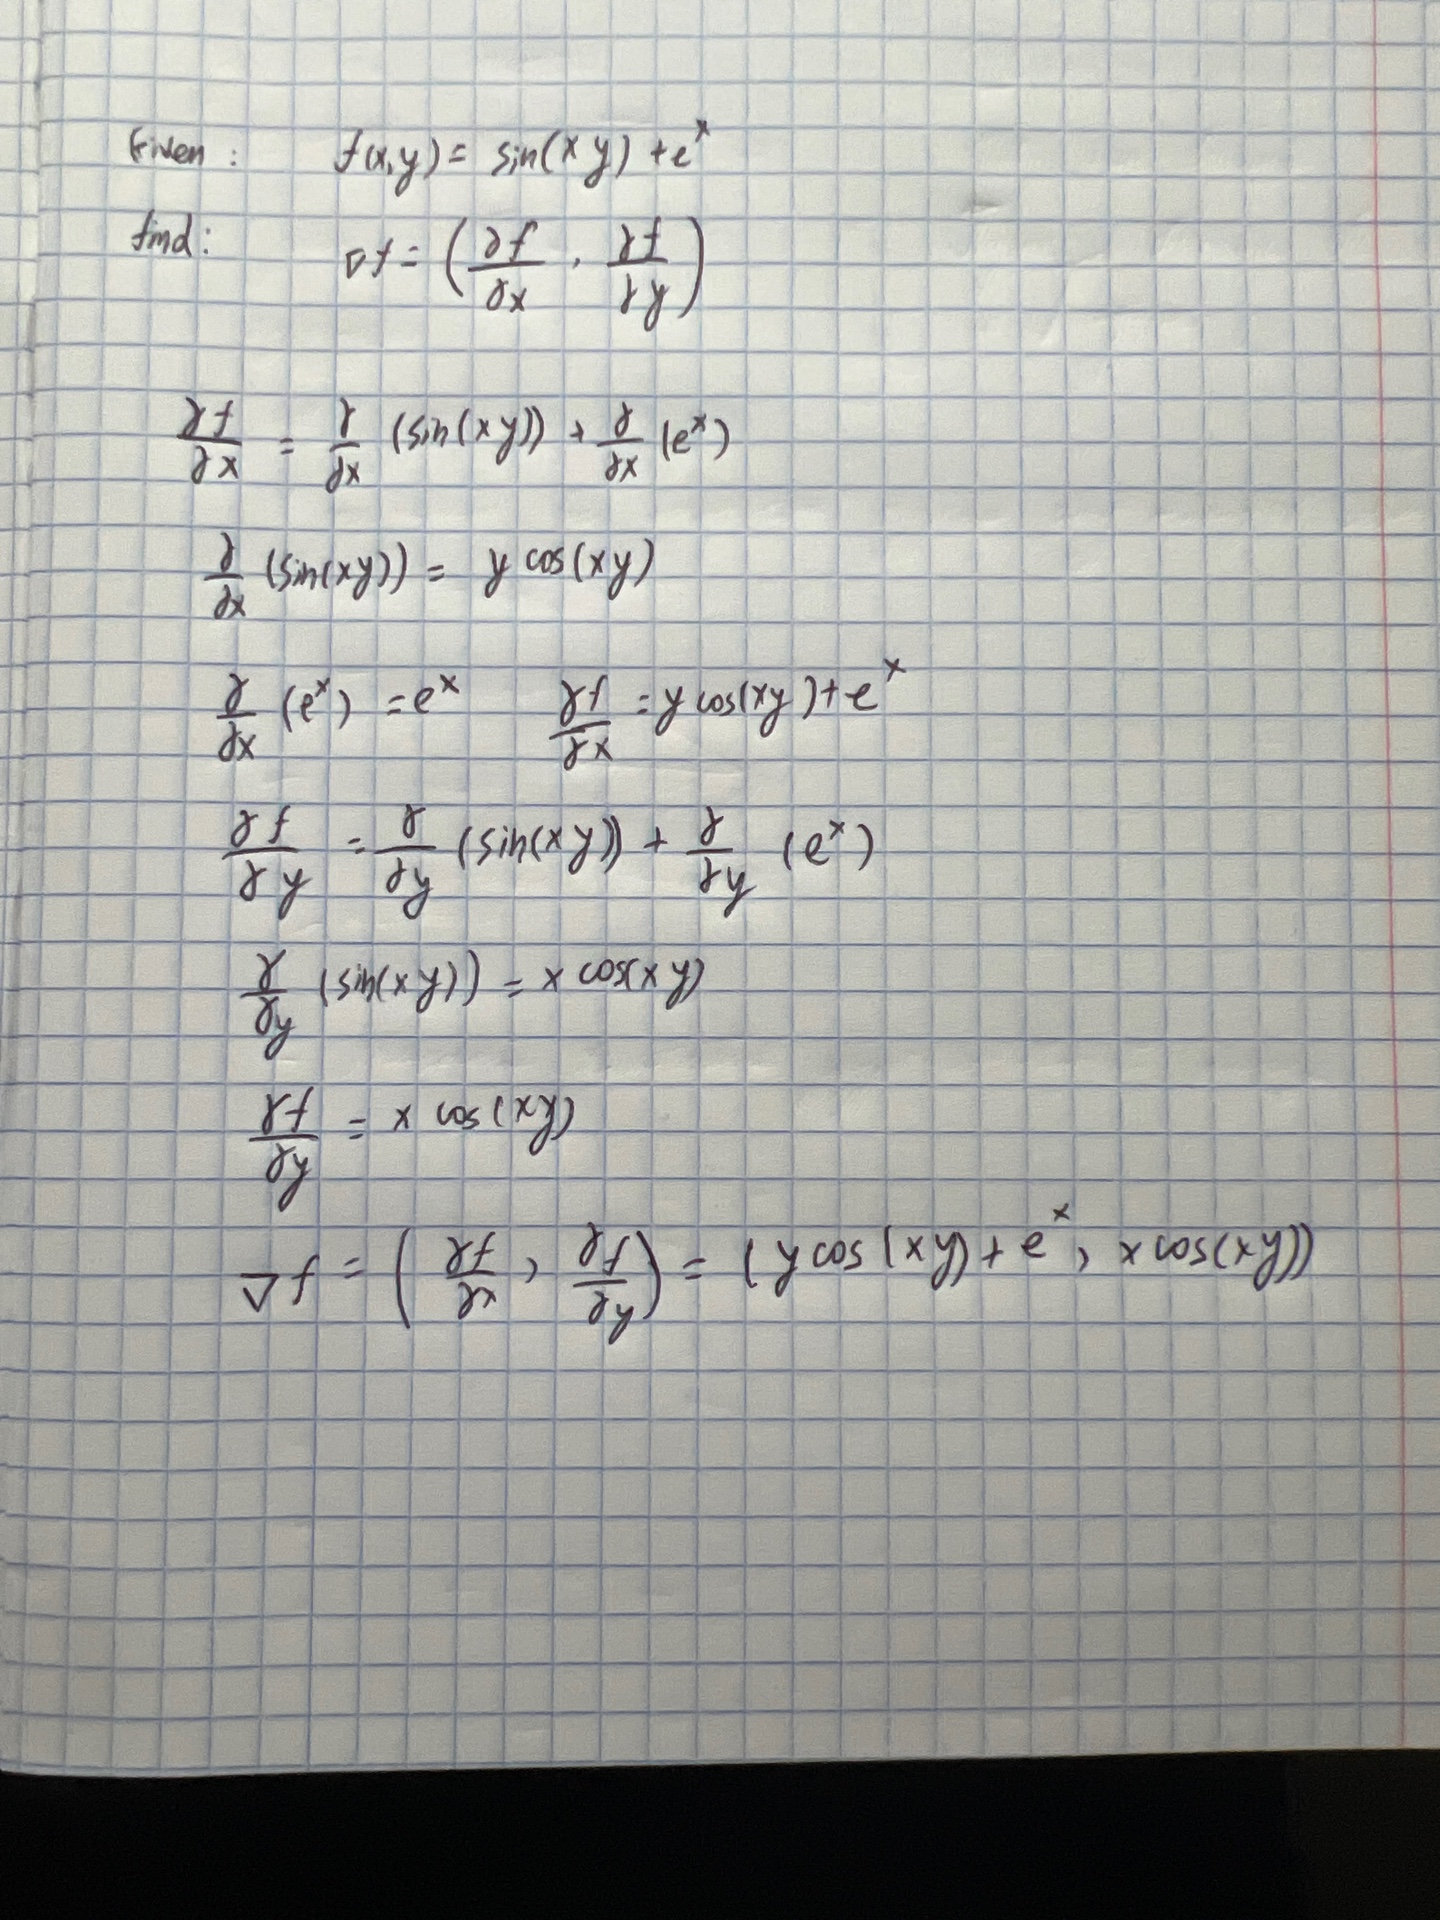 Given: f(x,y) = sin(xy) + e^x
find: ∇f = (∂f/∂x, ∂f/∂y)
∂f/∂x = ∂/∂x (sin(xy)) + ∂/∂x (e^x)
∂/∂x (sin(xy)) = y cos(xy)
∂/∂x (e^x) = e^x ∂f/∂x = y cos(xy) + e^x
∂f/∂y = ∂/∂y (sin(xy)) + ∂/∂y (e^x)
∂/∂y (sin(xy)) = x cos(xy)
∂f/∂y = x cos(xy)
∇f = (∂f/∂x, ∂f/∂y) = (y cos(xy) + e^x, x cos(xy))